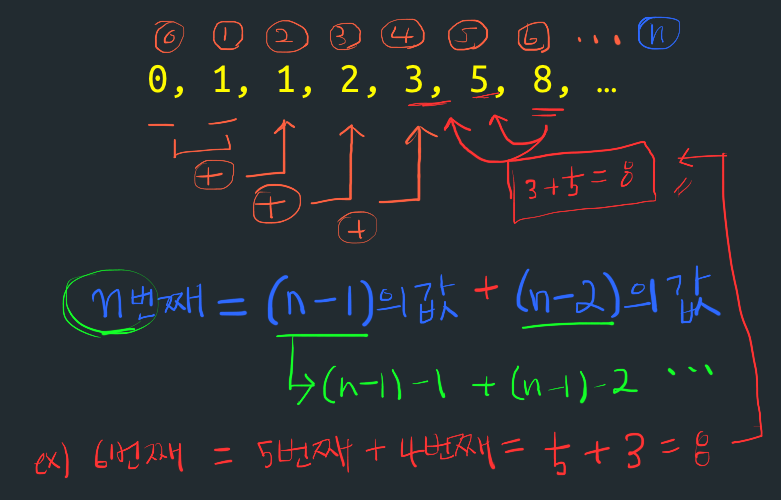 0 1 2 3 4 5 6 ... n
0, 1, 1, 2, 3, 5, 8, …
+
+
+
3+5=8
n번째 = (n-1)의 값 + (n-2)의 값
(n-1)-1 + (n-1)-2 ...
ex) 6번째 = 5번째 + 4번째 = 5 + 3 = 8